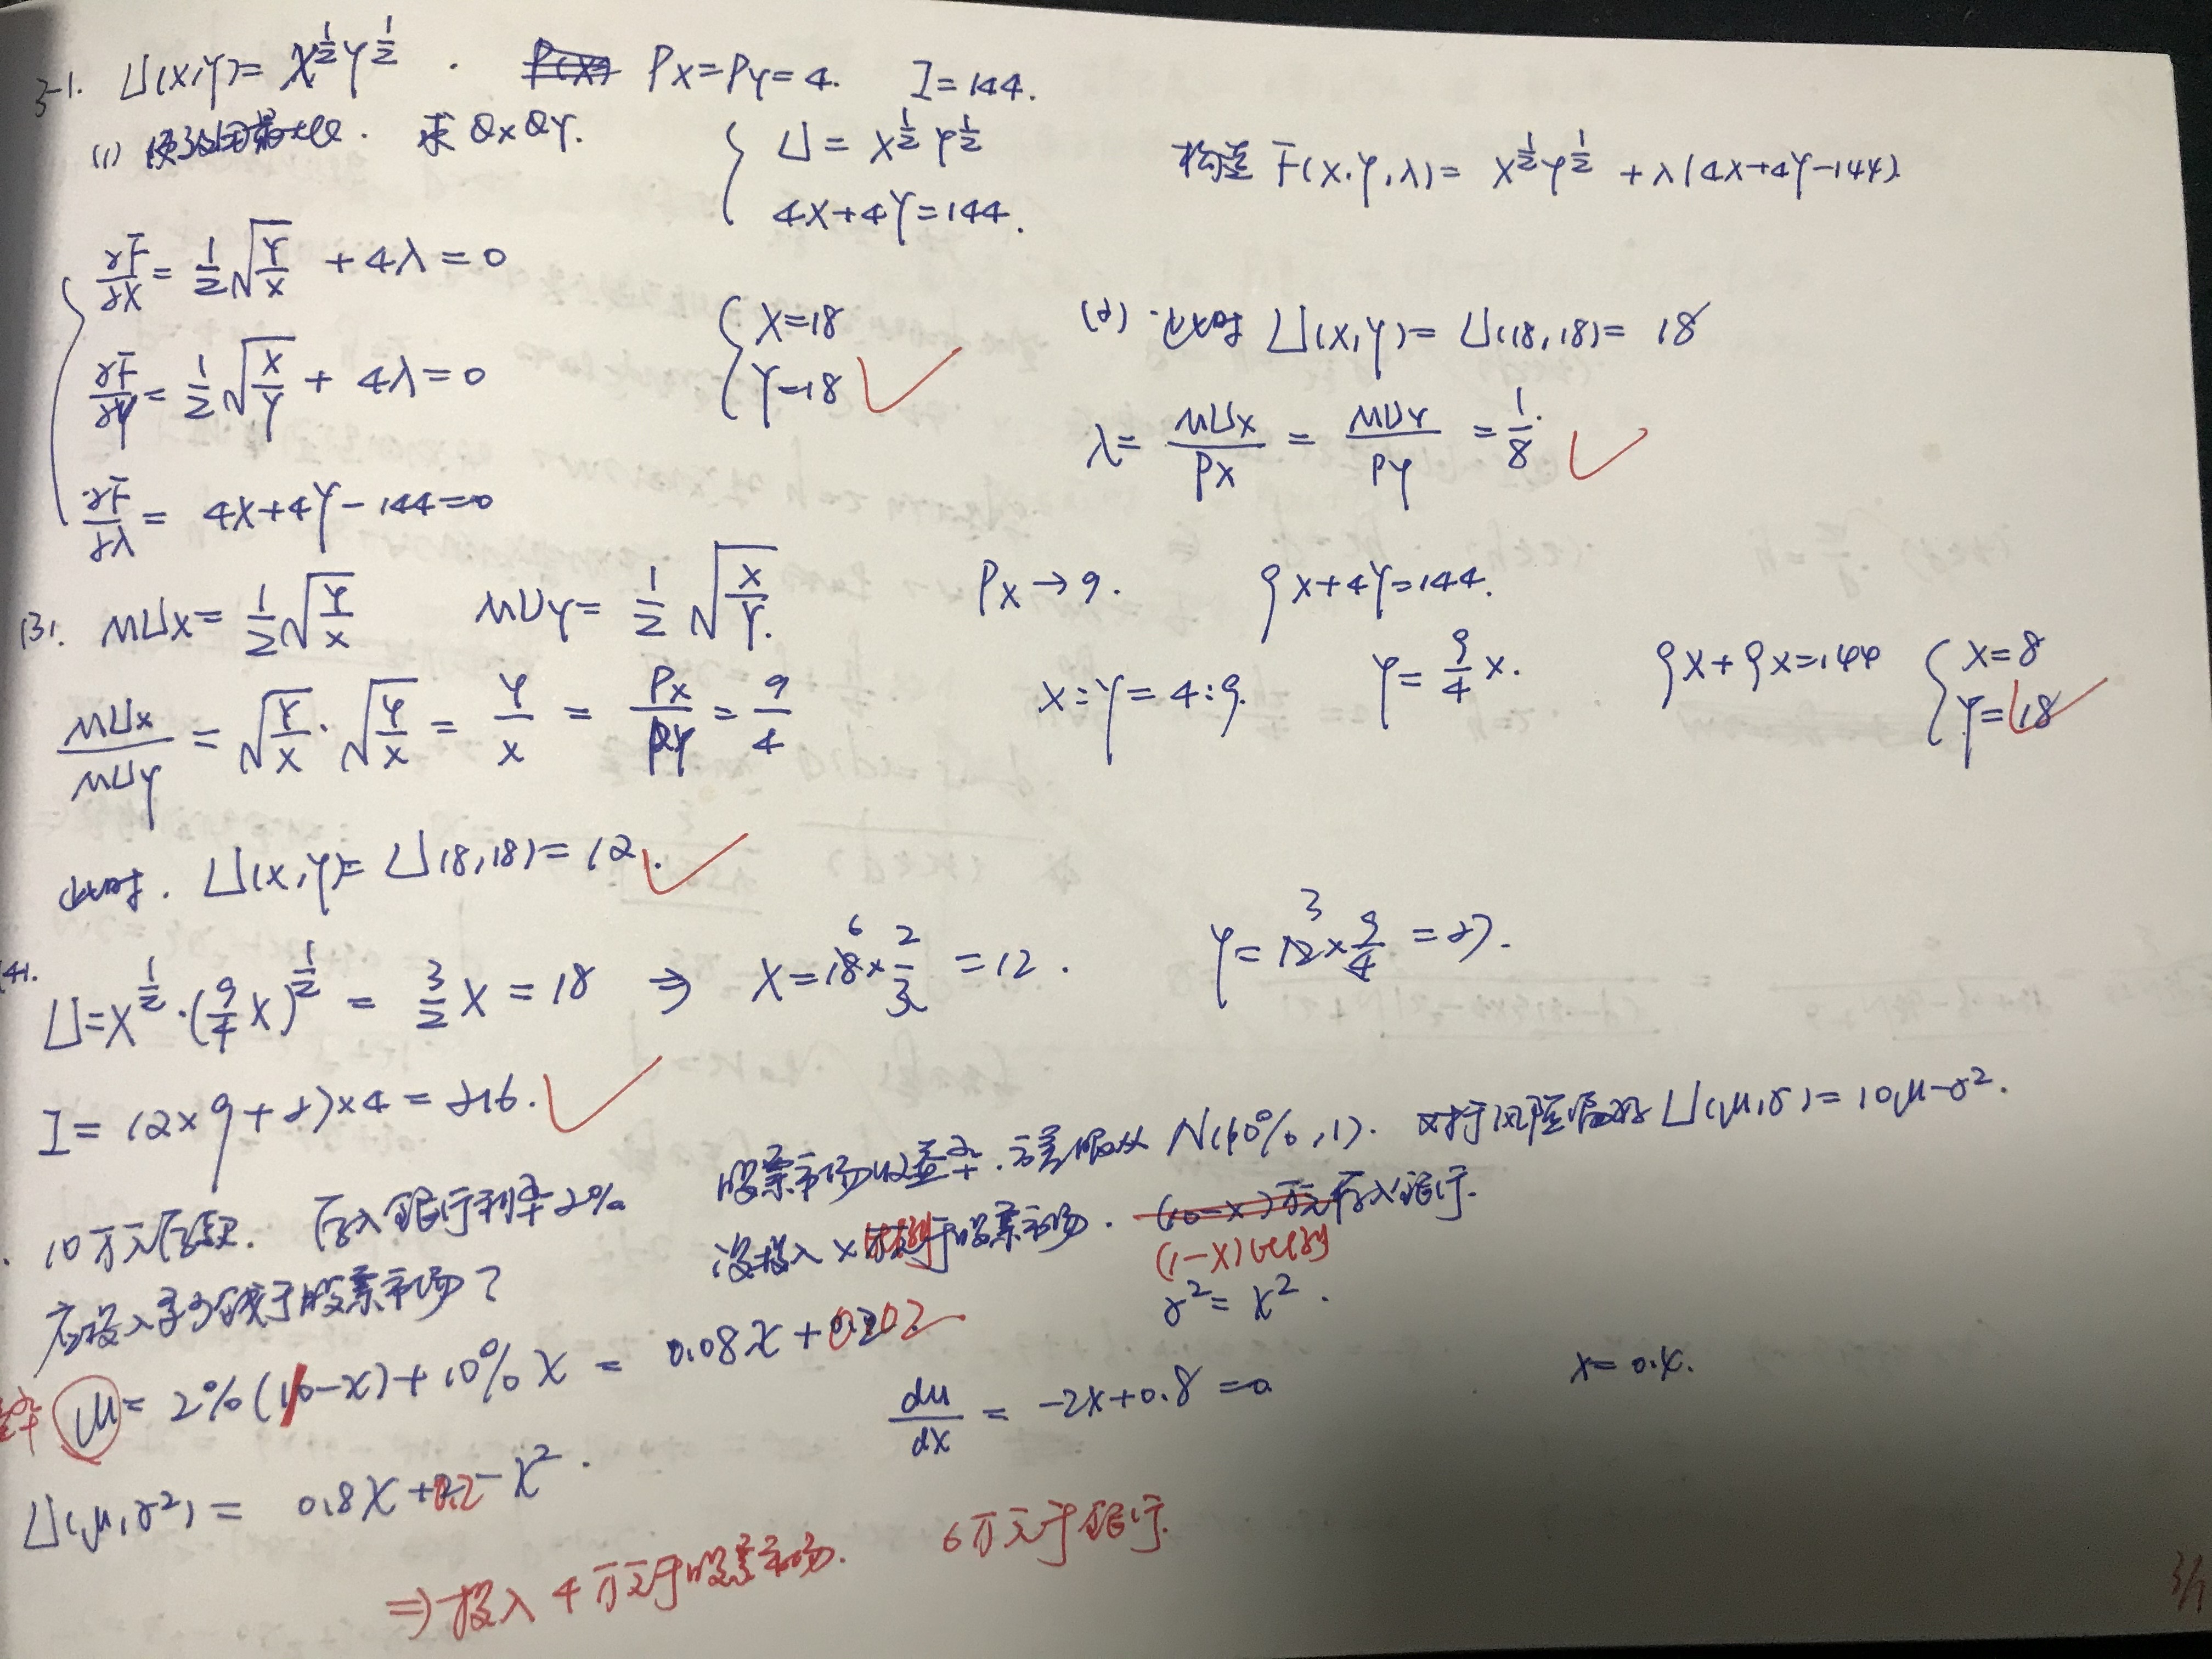 3-1. U(X,Y)= X^{1/2}Y^{1/2}. P(X) Px=Py=4. I=144.
(1) 使效用最大化. 求QxQy. { U= X^{1/2}Y^{1/2} 4X+4Y=144. 构造 F(X,Y,λ)= X^{1/2}Y^{1/2} +λ(4X+4Y-144)
∂F/∂X= 1/2 √(Y/X) +4λ=0
∂F/∂Y= 1/2 √(X/Y) + 4λ=0
∂F/∂λ= 4X+4Y-144=0
{ X=18 Y=18 ✓
(2) 此时 U(X,Y)= U(18,18)= 18
λ= MUx/Px = MUY/PY = 1/8. ✓
(3). MUx= 1/2 √(Y/X) MUy= 1/2 √(X/Y). Px→9. 9X+4Y=144.
MUx/MUy = √(Y/X)·√(Y/X) = Y/X = Px/PY = 9/4 X:Y=4:9. Y= 9/4 X. 9X+9X=144 { X=8 Y=18 ✓
此时. U(X,Y)= U(8,18)=12. ✓
(4). U=X^{1/2}·(9/4 X)^{1/2} = 3/2 X = 18 ⇒ X=18×2/3 =12. Y= 12×9/4 =27.
I= 12×9+27×4=216. ✓
10万元存款. 存入银行利率2% 股票市场收益率.方差服从 N(10%,1). 对于风险偏好 U(μ,σ)=10μ-σ².
应投入多少钱于股票市场? 设投入x万元比例于股票市场. (10-x)万元存入银行.
(1-x)比例
σ²= x².
率 μ= 2%(1-x)+10%x = 0.08x+0.02
U(μ,σ²)= 0.8x+0.2-x². du/dx = -2x+0.8=0 x=0.4.
⇒投入4万元于股票市场. 6万元于银行.